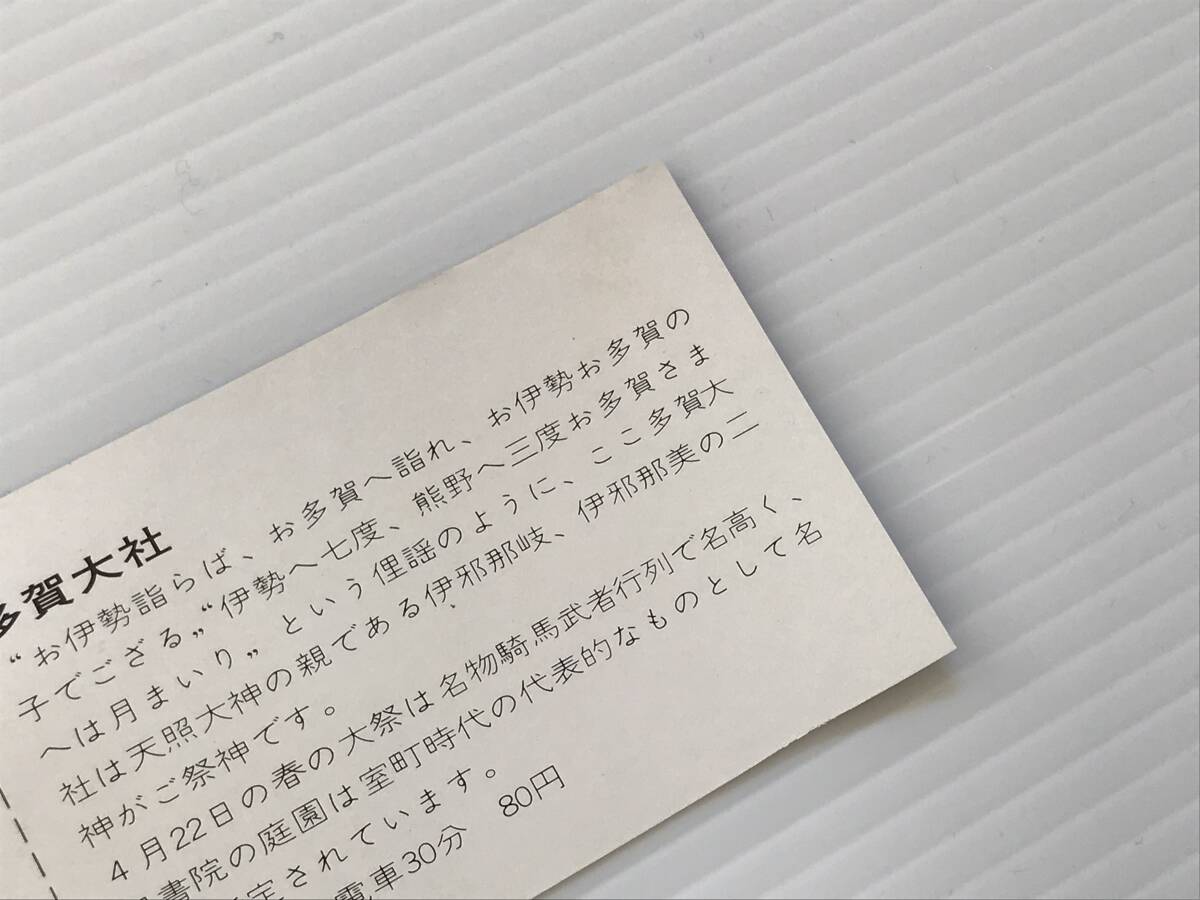 多賀大社
“お伊勢詣らば、お多賀へ詣れ、お伊勢お多賀の
子でござる„“伊勢へ七度、熊野へ三度お多賀さま
へは月まいり„という俚謡のように、ここ多賀大
社は天照大神の親である伊邪那岐、伊邪那美の二
神がご祭神です。
4月22日の春の大祭は名物騎馬武者行列で名高く、
書院の庭園は室町時代の代表的なものとして名
定されています。
電車30分 80円